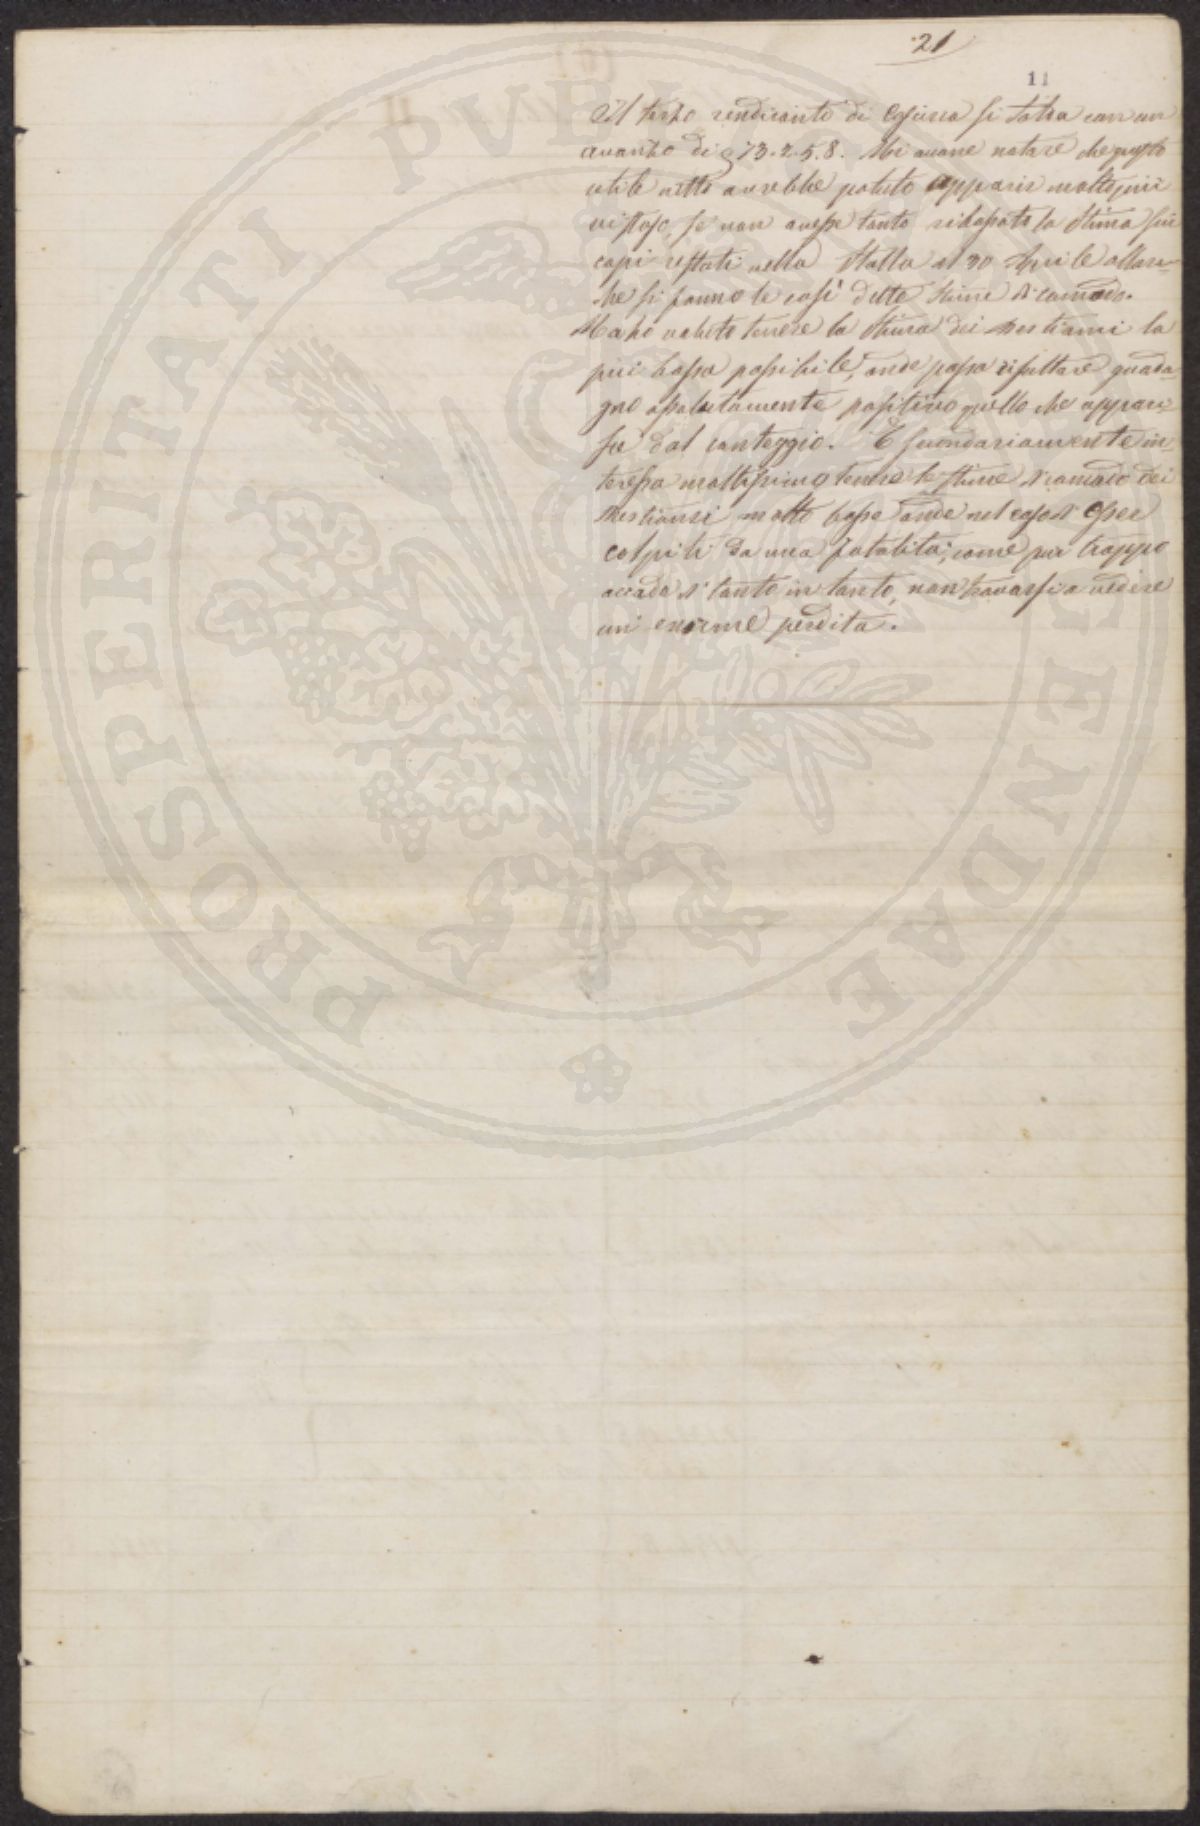 21
11
Il terzo rendiconto di si salda con un
avanzo di 73.2.5.8. Mi avane notare che questo
utile netto avrebbe potuto apparir molto più
vistoso, se non avesse tanto ribassato la stima sui
capi restati nella stalla al 30 Aprile allor-
che si fanno le così dette stime di comodo.
Ma ho voluto tenere la stima dei bestiami la
più bassa possibile, onde possa risultare guada-
gno assolutamente positivo quello che appari-
sce dal conteggio. E secondariamente in-
teressa moltissimo tenere le stime di comodo dei
bestiami molto basse onde nel caso d'esser
colpiti da una fatalità, come pur troppo
accade di tanto in tanto, non trovarsi a vedere
un' enorme perdita.
PROSPERITATI PUBLICAE AUGENDAE